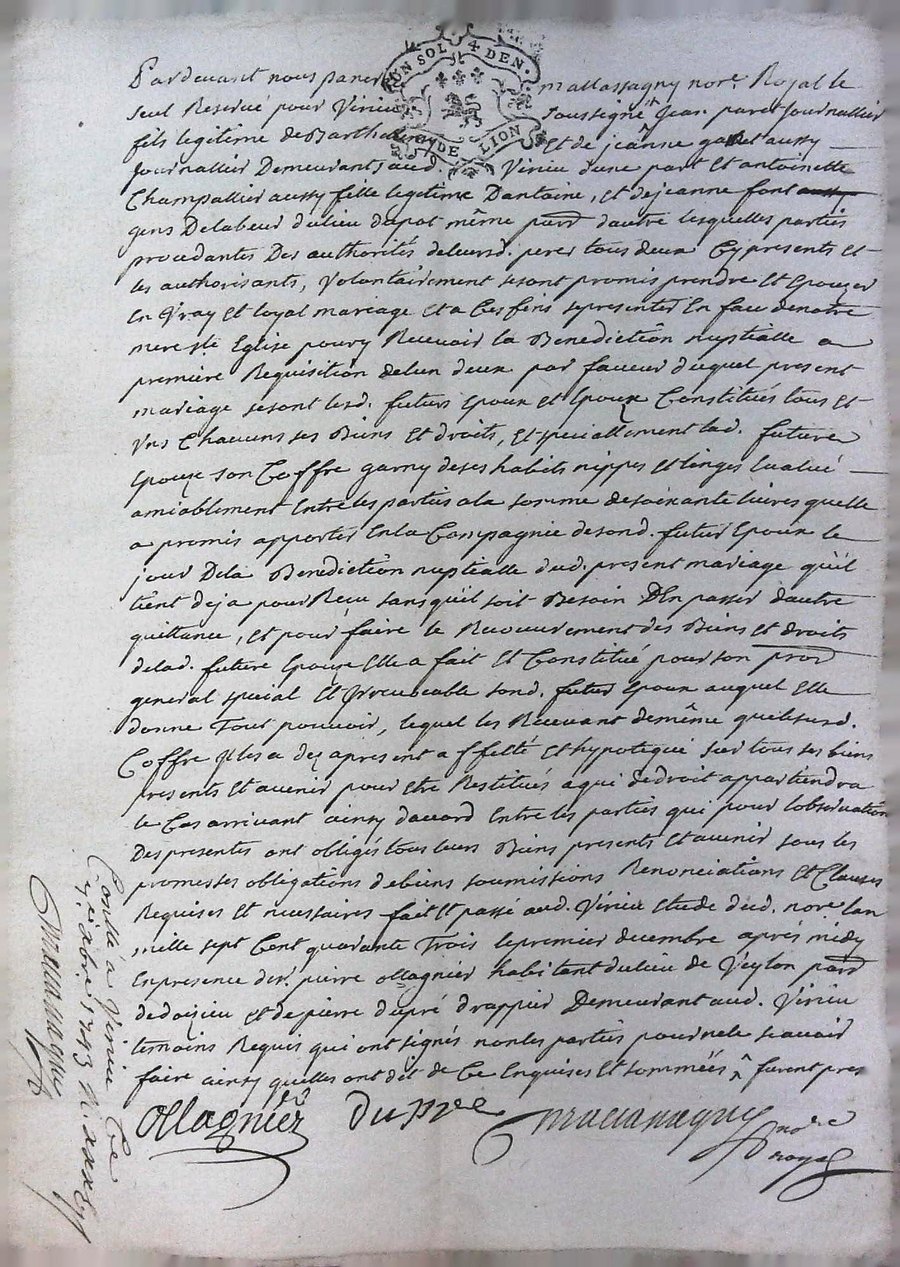 UN SOL 4 DEN.
G. DE LION
Pardevant nous paner mallassagny nore. Royal le
seul Reservé pour Virieu soussigné Jean paret Journallier
fils legitime de Barthelemy et de jeanne gavet aussy
Journallier Demeurants aud. Virieu dune part Et antoinette
Champallier aussy fille legitime Dantoine, et de jeanne font aussy
gens Delabeur du lieu dupot même parr. dautre lesquelles parties
procedantes Des authorités deleursd. peres tous deux Cy presents et
les authorisants, Volontairement se sont promis prendre et Epouzer
En Vray et loyal mariage et a Ces fins se presenter En face denotre
mere ste Eglise pour y Recevoir la Benediction nuptialle a
première Requisition delun deux par faveur duquel present
mariage se sont lesd. futurs Epoux et Epouze Constitués tous et
Uns Chacuns ses Biens et droits, et speciallement lad. future
Epouze son Coffre garny de ses habits nippes et linges Evalué
amiablement Entre les parties a la somme de soixante livres quelle
a promis apporter En la Compagnie de sond. futur Epoux le
jour De la Benediction nuptialle dud. present mariage qu'il
tient deja pour Recu sans quil soit Besoin D'En passer dautre
quittance, et pour faire le Recouvrement des Biens et droits
delad. future Epouze Elle a fait et Constitué pour son procr.
general special et jrrevocable sond. futur Epoux auquel Elle
donne Tout pouvoir, lequel les Recevant de même que lesusd.
Coffre Jl les a dez apresent affecté et hypotequé sur tous ses biens
presents et avenir pour Etre Restitués a qui de droit appartiendra
le Cas arrivant ainsy daccord Entre les parties qui pour lobservation
Des presentes ont obligés tous leurs Biens presents et avenir sous les
promesses obligations de biens soumissions Renonciations et Clauses
Requises et necessaires fait et passé aud. Virieu Etude dud. nore. lan
mille sept Cent quarante Trois le premier decembre après midy
En presence de sr. pierre ollagnier habitant du lieu de Veylon parr.
dedoizieu et de pierre dupré drappier Demeurant aud. Virieu
temoins Requis qui ont signés non les parties pour ne le scavoir
faire ainsy quelles ont dit de Ce Enquises et sommées ^ furent pres
Ollagnier dupre mallassagny nore
royal
Conllé a Virieu le
xbre 1743 R.
mallassagny